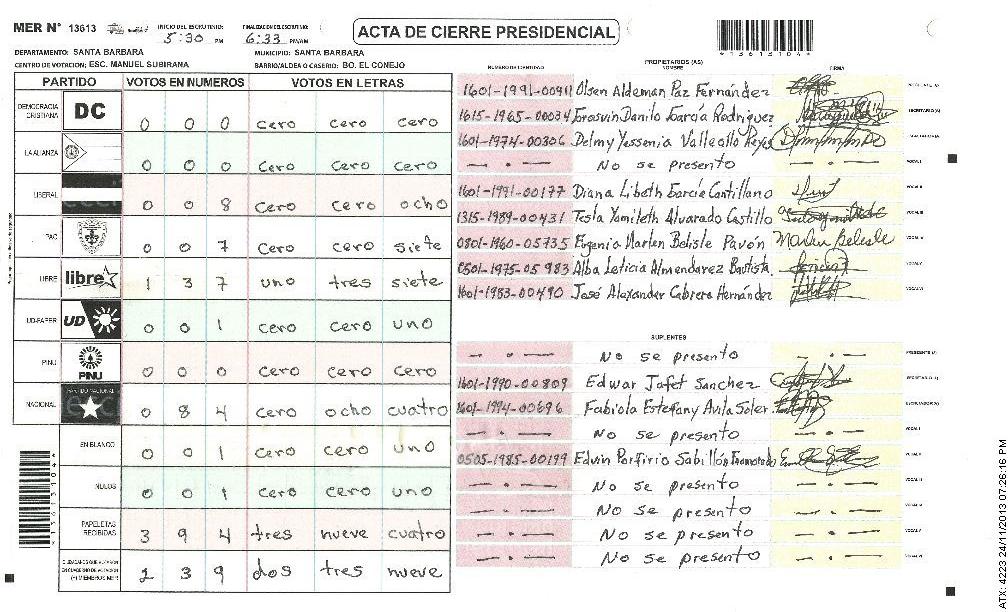 MER N° 13613 INICIO DEL ESCRUTINIO: 5:30 PM FINALIZACION DEL ESCRUTINIO: 6:33 PM/AM ACTA DE CIERRE PRESIDENCIAL *13613104*
DEPARTAMENTO: SANTA BARBARA MUNICIPIO: SANTA BARBARA
CENTRO DE VOTACION: ESC. MANUEL SUBIRANA BARRIO/ALDEA O CASERIO: BO. EL CONEJO
PARTIDO VOTOS EN NUMEROS VOTOS EN LETRAS
DEMOCRACIA CRISTIANA DC 0 0 0 cero cero cero
LA ALIANZA 0 0 0 Cero Cero Cero
LIBERAL 0 0 8 Cero Cero ocho
PAC 0 0 7 Cero Cero siete
LIBRE libre 1 3 7 uno tres siete
UD-FAPER UD 0 0 1 cero cero uno
PINU PINU 0 0 0 cero cero cero
NACIONAL PARTIDO NACIONAL 0 8 4 cero ocho cuatro
EN BLANCO 0 0 1 cero cero uno
NULOS 0 0 1 cero cero uno
PAPELETAS RECIBIDAS 3 9 4 tres nueve cuatro
CIUDADANOS QUE VOTARON EN CUADERNO DE VOTACION (+) MIEMBROS MER 2 3 9 dos tres nueve
*13613104*
PROPIETARIOS (AS)
NUMERO DE IDENTIDAD NOMBRE FIRMA
1601-1991-00911 Olsen Aldeman Paz Fernández PRESIDENTE (A)
1615-1965-00034 Erasvin Danilo García Rodriguez SECRETARIO (A)
1601-1974-00306 Delmy Yessenia Vallecillo Reyes ESCRUTADOR (A)
— . — No se presento — . — VOCAL I
1601-1991-00177 Diana Libeth García Cantillano VOCAL II
1315-1989-00431 Tesla Yamileth Alvarado Castillo VOCAL III
0801-1960-05735 Eugenia Marlen Belisle Pavón Marlen Belisle VOCAL IV
0501-1975-05983 Alba Leticia Almendarez Bautista VOCAL V
1601-1983-00490 José Alexander Cabrera Hernández VOCAL VI
SUPLENTES
— . — No se presento — . — PRESIDENTE (A)
1601-1990-00809 Edwar Jafet Sanchez SECRETARIO (A)
1601-1994-00696 Fabiola Estefany Avila Soler ESCRUTADOR (A)
— . — No se presento — . — VOCAL I
0505-1985-00199 Edvin Porfirio Sabillón VOCAL II
— . — No se presento — . — VOCAL III
— . — No se presento — . — VOCAL IV
— . — No se presento — . — VOCAL V
— . — No se presento — . — VOCAL VI
ATX: 4223 24/11/2013 07:26:16 PM